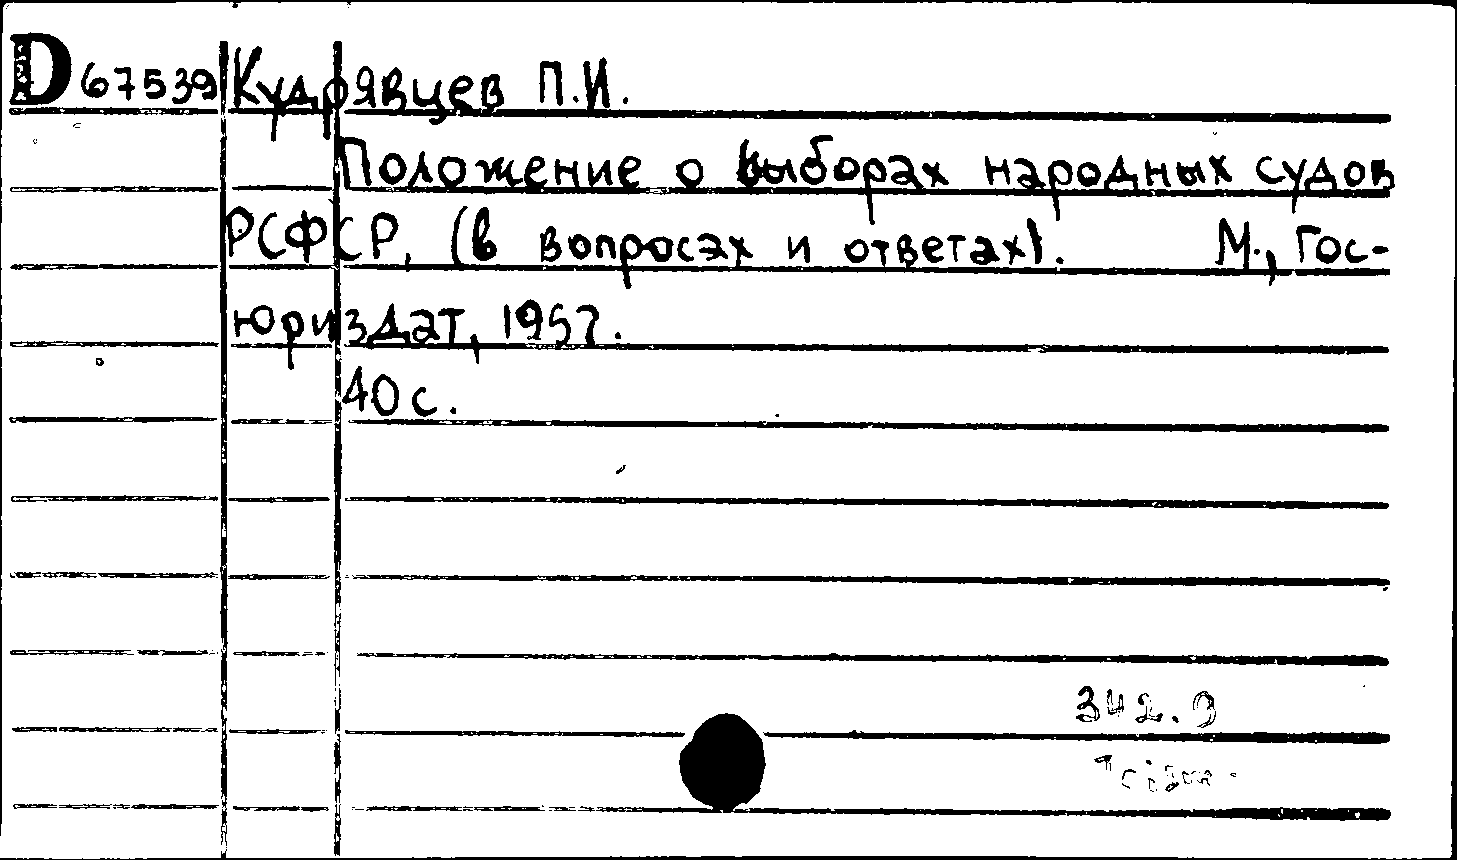 D 67539 Кудрявцев П.И.
Положение о выборах народных судов
РСФСР, (в вопросах и ответах). М., Гос-
юриздат, 1957.
40 с.
342.9